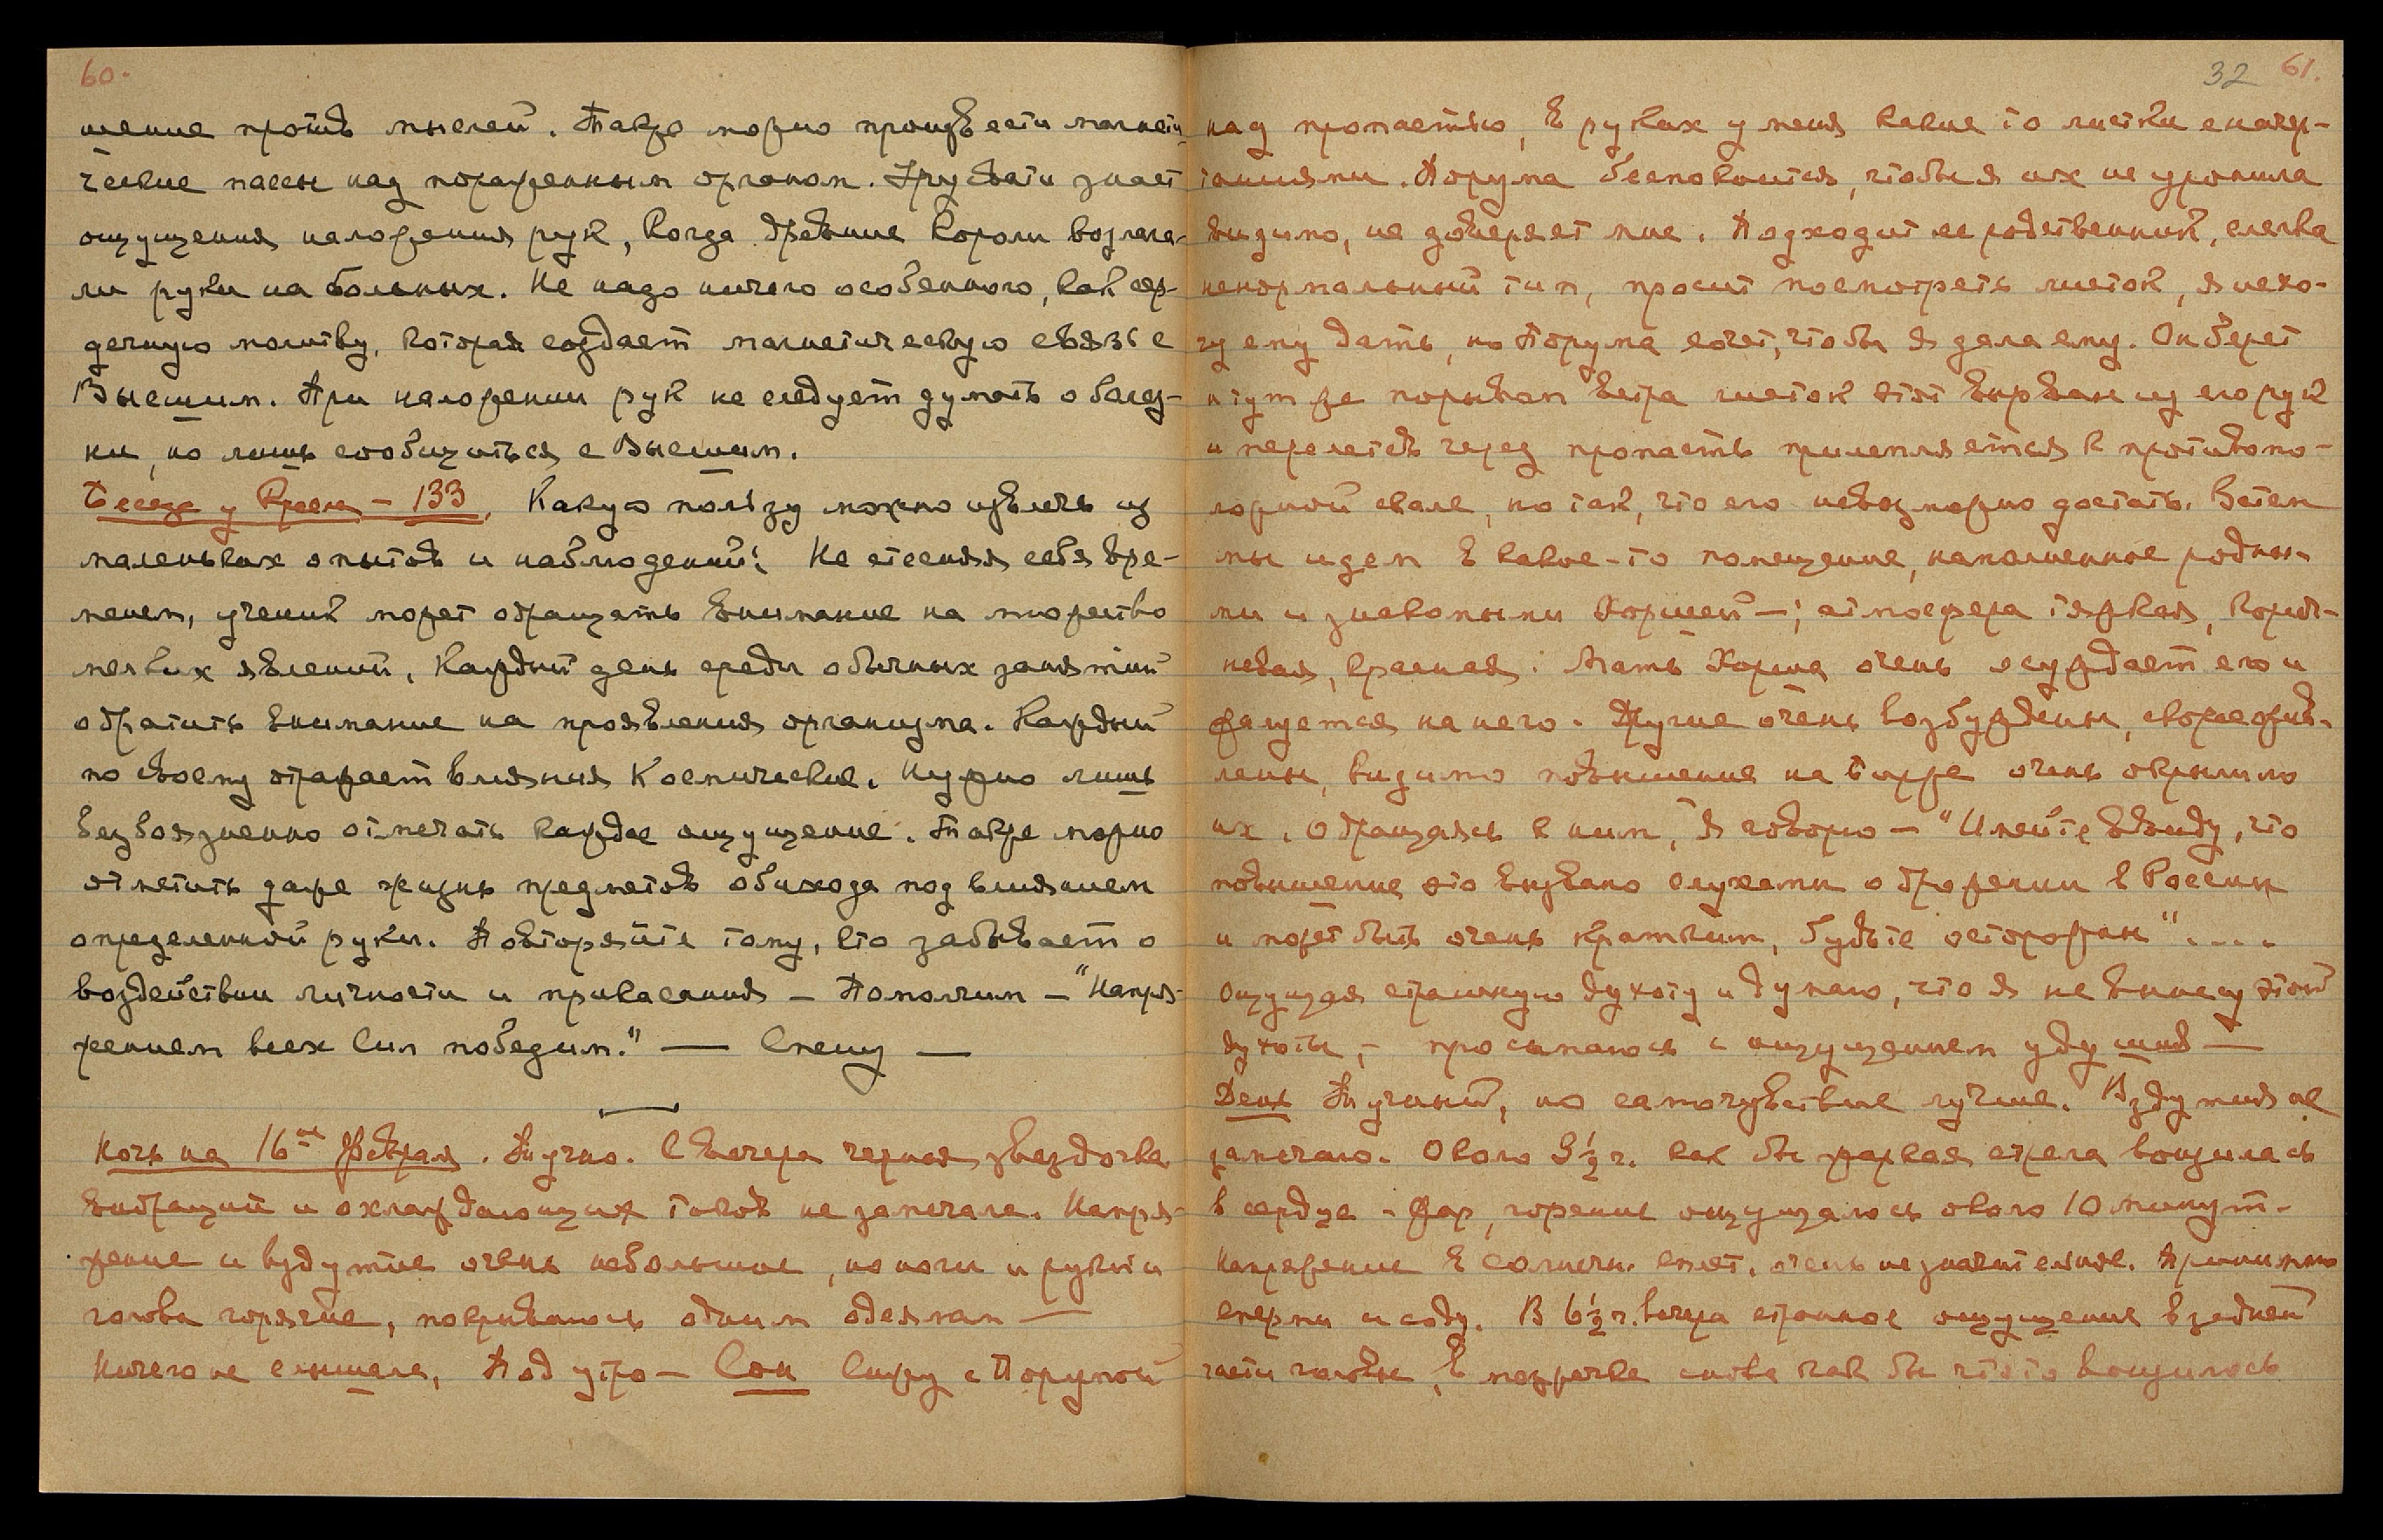 60.
шение против мыслей. Также можно произвести магнети-
ческие пассы над пораженным органом. Урусвати знает
ощущения наложения рук, когда древние короли возлага-
ли руки на больных. Не надо ничего особенного, как сер-
дечную молитву, которая создает магнетическую связь с
Высшим. При наложении рук не следует думать о болез-
ни, но лишь сообщиться с Высшим.
Беседа у Кресла – 133. Какую пользу можно извлечь из
маленьких опытов и наблюдений: Не стесняя себя вре-
менем, ученик может обращать внимание на множество
мелких явлений. Каждый день среди обычных занятий
обратить внимание на проявления организма. Каждый
по своему отражает влияния Космические. Нужно лишь
безбоязненно отмечать каждое ощущение. Также можно
отметить даже жизнь предметов обихода под влиянием
определенной руки. Повторяйте тому, кто забывает о
воздействии личности и прикасания – Помолчим – "Напря-
жением всех Сил победим." — Спешу —
Ночь на 16ое Февраля. Тучно. С вечера черная звездочка
вибраций и охлаждающих токов не замечала. Напря-
жение и вздутие очень небольшие, но ноги и руки и
голова горячие, покрывалась одним одеялом —
Ничего не слышала. Под утро – Сон Сижу с Порумой
32 61.
над пропастью, в руках у меня какие то листки с начер-
таниями. Порума беспокоится, чтобы я их не уронила
видимо, не доверяет мне. Подходит ее родственник, слегка
ненормальный тип, просит посмотреть листок, я не хо-
чу ему дать, но Порума хочет, чтобы я дала ему. Он берет
и тут же порывом ветра листок этот вырван из его рук
и перелетев через пропасть прилепляется к противопо-
ложной скале, но так, что его невозможно достать. Затем
мы идем в какое-то помещение, наполненное родны-
ми и знакомыми Хоршей –; атмосфера тяжкая, корич-
невая, красная. Мать Хорша очень осуждает его и
жалуется на него. Другие очень возбуждены,
видимо повышение на бирже очень окрылило
их. Обращаясь к ним, я говорю – "Имейте в виду, что
повышение это вызвано слухами о брожении в России
и может быть очень кратким, будьте осторожны"....
Ощущая страшную духоту и думаю, что я не вынесу этой
духоты, – просыпаюсь с ощущением удушия —
День Тучный, но самочувствие лучше. Вздутия не
замечаю. Около 5½ч. как бы жаркая стрела вонзилась
в сердце – жар, горение ощущалось около 10 минут.
Напряжение в солнечн. сплет. очень незначительное. Принимаю
и соду. В 6½ч. вечера странное ощущение в задней
части головы, в мозжечке снова как бы что то вонзилось